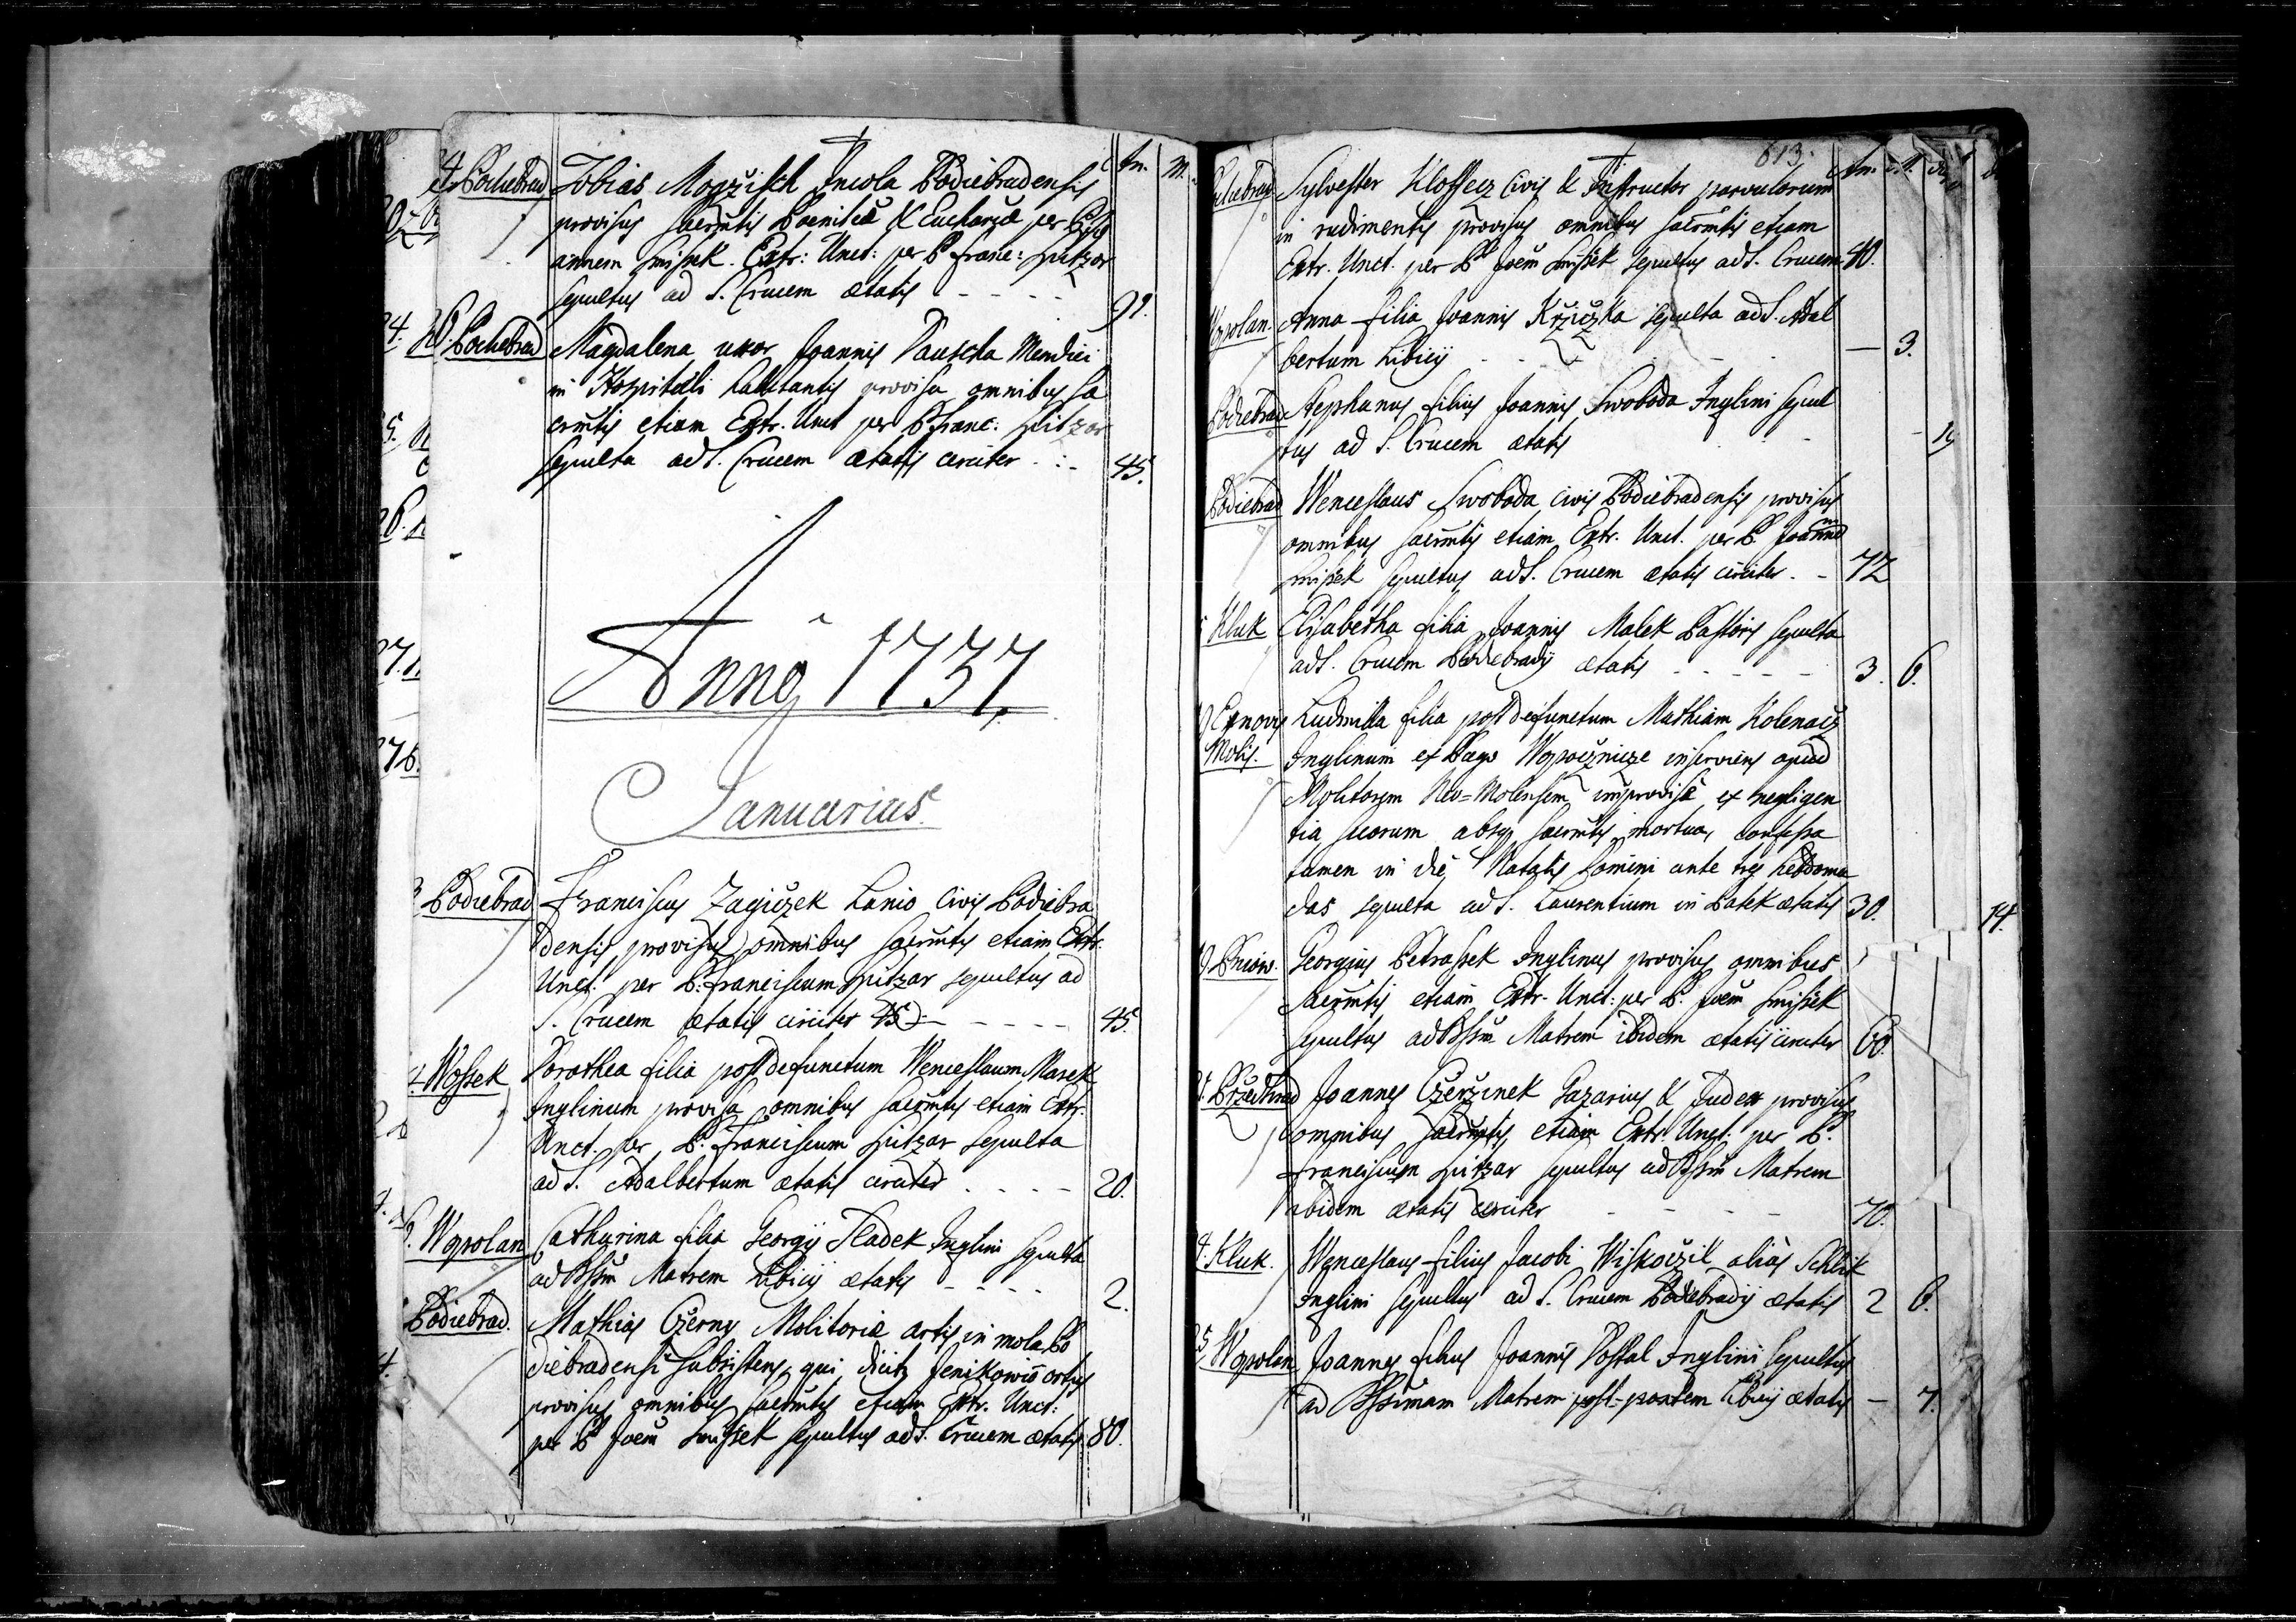 An. M.
Podiebrad Tobias Mogžisch Incola Podiebradensis
provisus sacrmtis Poenitae & Eucharae per P. Jo
annem Smissek. Extr: Unct: per P. Franc: Spitzar
sepultus ad S. Crucem ætatis - - - - 99.
Podiebrad Magdalena uxor Joannis Pauscha Mendici
in Hospitali habitantis provisa omnibus sa
crmtis etiam Extr. Unct per P. Franc: Spitzar
sepulta ad S. Crucem ætatis circiter 45.
Anno 1737.
Januarius
3 Podiebrad Franciscus Zagiczek Lanio Civis Podiebra
densis provisus omnibus sacrmtis etiam Extr.
Unct. per P. Franciscum Spitzar sepultus ad
S. Crucem ætatis circiter 45 - - - - 45.
4. Wossek Dorothea filia post defunctum Wenceslaum Marek
Inqlinum provisa omnibus sacrmtis etiam Extr.
Unct. per P. Franciscum Spitzar sepulta
ad S. Adalbertum ætatis circiter - - - - 20.
6. Wopolan Catharina filia Georgij Sladek Inqlini sepulta
ad Bssm Matrem Libicij ætatis - - - - 2.
Podiebrad. Mathias Czerny Molitoriæ artis in mola Po
diebradensi subsistens, qui dicit Jenikowio ortus
provisus omnibus sacrmtis etiam Extr. Unct:
per P. Joem Smissek sepultus ad S. Crucem ætatis 80.
613.
An. M.
Podiebrad Sylvester Klossecz Civis & Instructor parvulorum
in rudimentis provisus omnibus sacrmtis etiam
Extr. Unct. per P. Joem Smissek sepultus ad S. Crucem 40.
Wopolan. Anna filia Joannis Kržiczka sepulta ad S. Adal
bertum Libicij - - - — 3.
Podiebrad Stephanus filius Joannis Swoboda Inqlini sepul
tus ad S. Crucem ætatis - - 14
Podiebrad Wenceslaus Swoboda Civis Podiebradensis provisus
omnibus sacrmtis etiam Extr. Unct. per P. Joannem
Smissek sepultus ad S. Crucem ætatis circiter - - 72
Kluk Elisabetha filia Joannis Malek Pastoris sepulta
ad S. Crucem Podiebradij ætatis - - - - - 3. 6.
Ludmilla filia post defunctum Mathiam Kolenacz
Molis. Inqlinum ex Pago Wopocžnicze inserviens apud
Molitorem Neo=Molensem improvise ex negligen
tia suorum absq sacrmtis mortua, confessa
tamen in die Natalis Domini ante tres hebdoma
das sepulta ad S. Laurentium in Patek ætatis 30. 14.
Pniow. Georgius Petrassek Inqlinus provisus omnibus
sacrmtis etiam Extr. Unct: per P. Joem Smissek
sepultus ad Bssm Matrem ibidem ætatis circiter 60.
Pržedhrad Joannes Czeržinek Gazarius & Judex provisus
omnibus sacrmtis etiam Extr. Unct: per P.
Franciscum Spitzar sepultus ad Bssm Matrem
ibidem ætatis circiter - - - - 70.
4. Kluk. Wenceslaus filius Jacobi Wiskoczil alias Schlik
Inqlini sepultus ad S. Crucem Podiebradij ætatis 2 6.
25. Wopolan Joannes filius Joannis Dostal Inqlini sepultus
ad Bssimam Matrem post=pontem Libicij ætatis — 7.